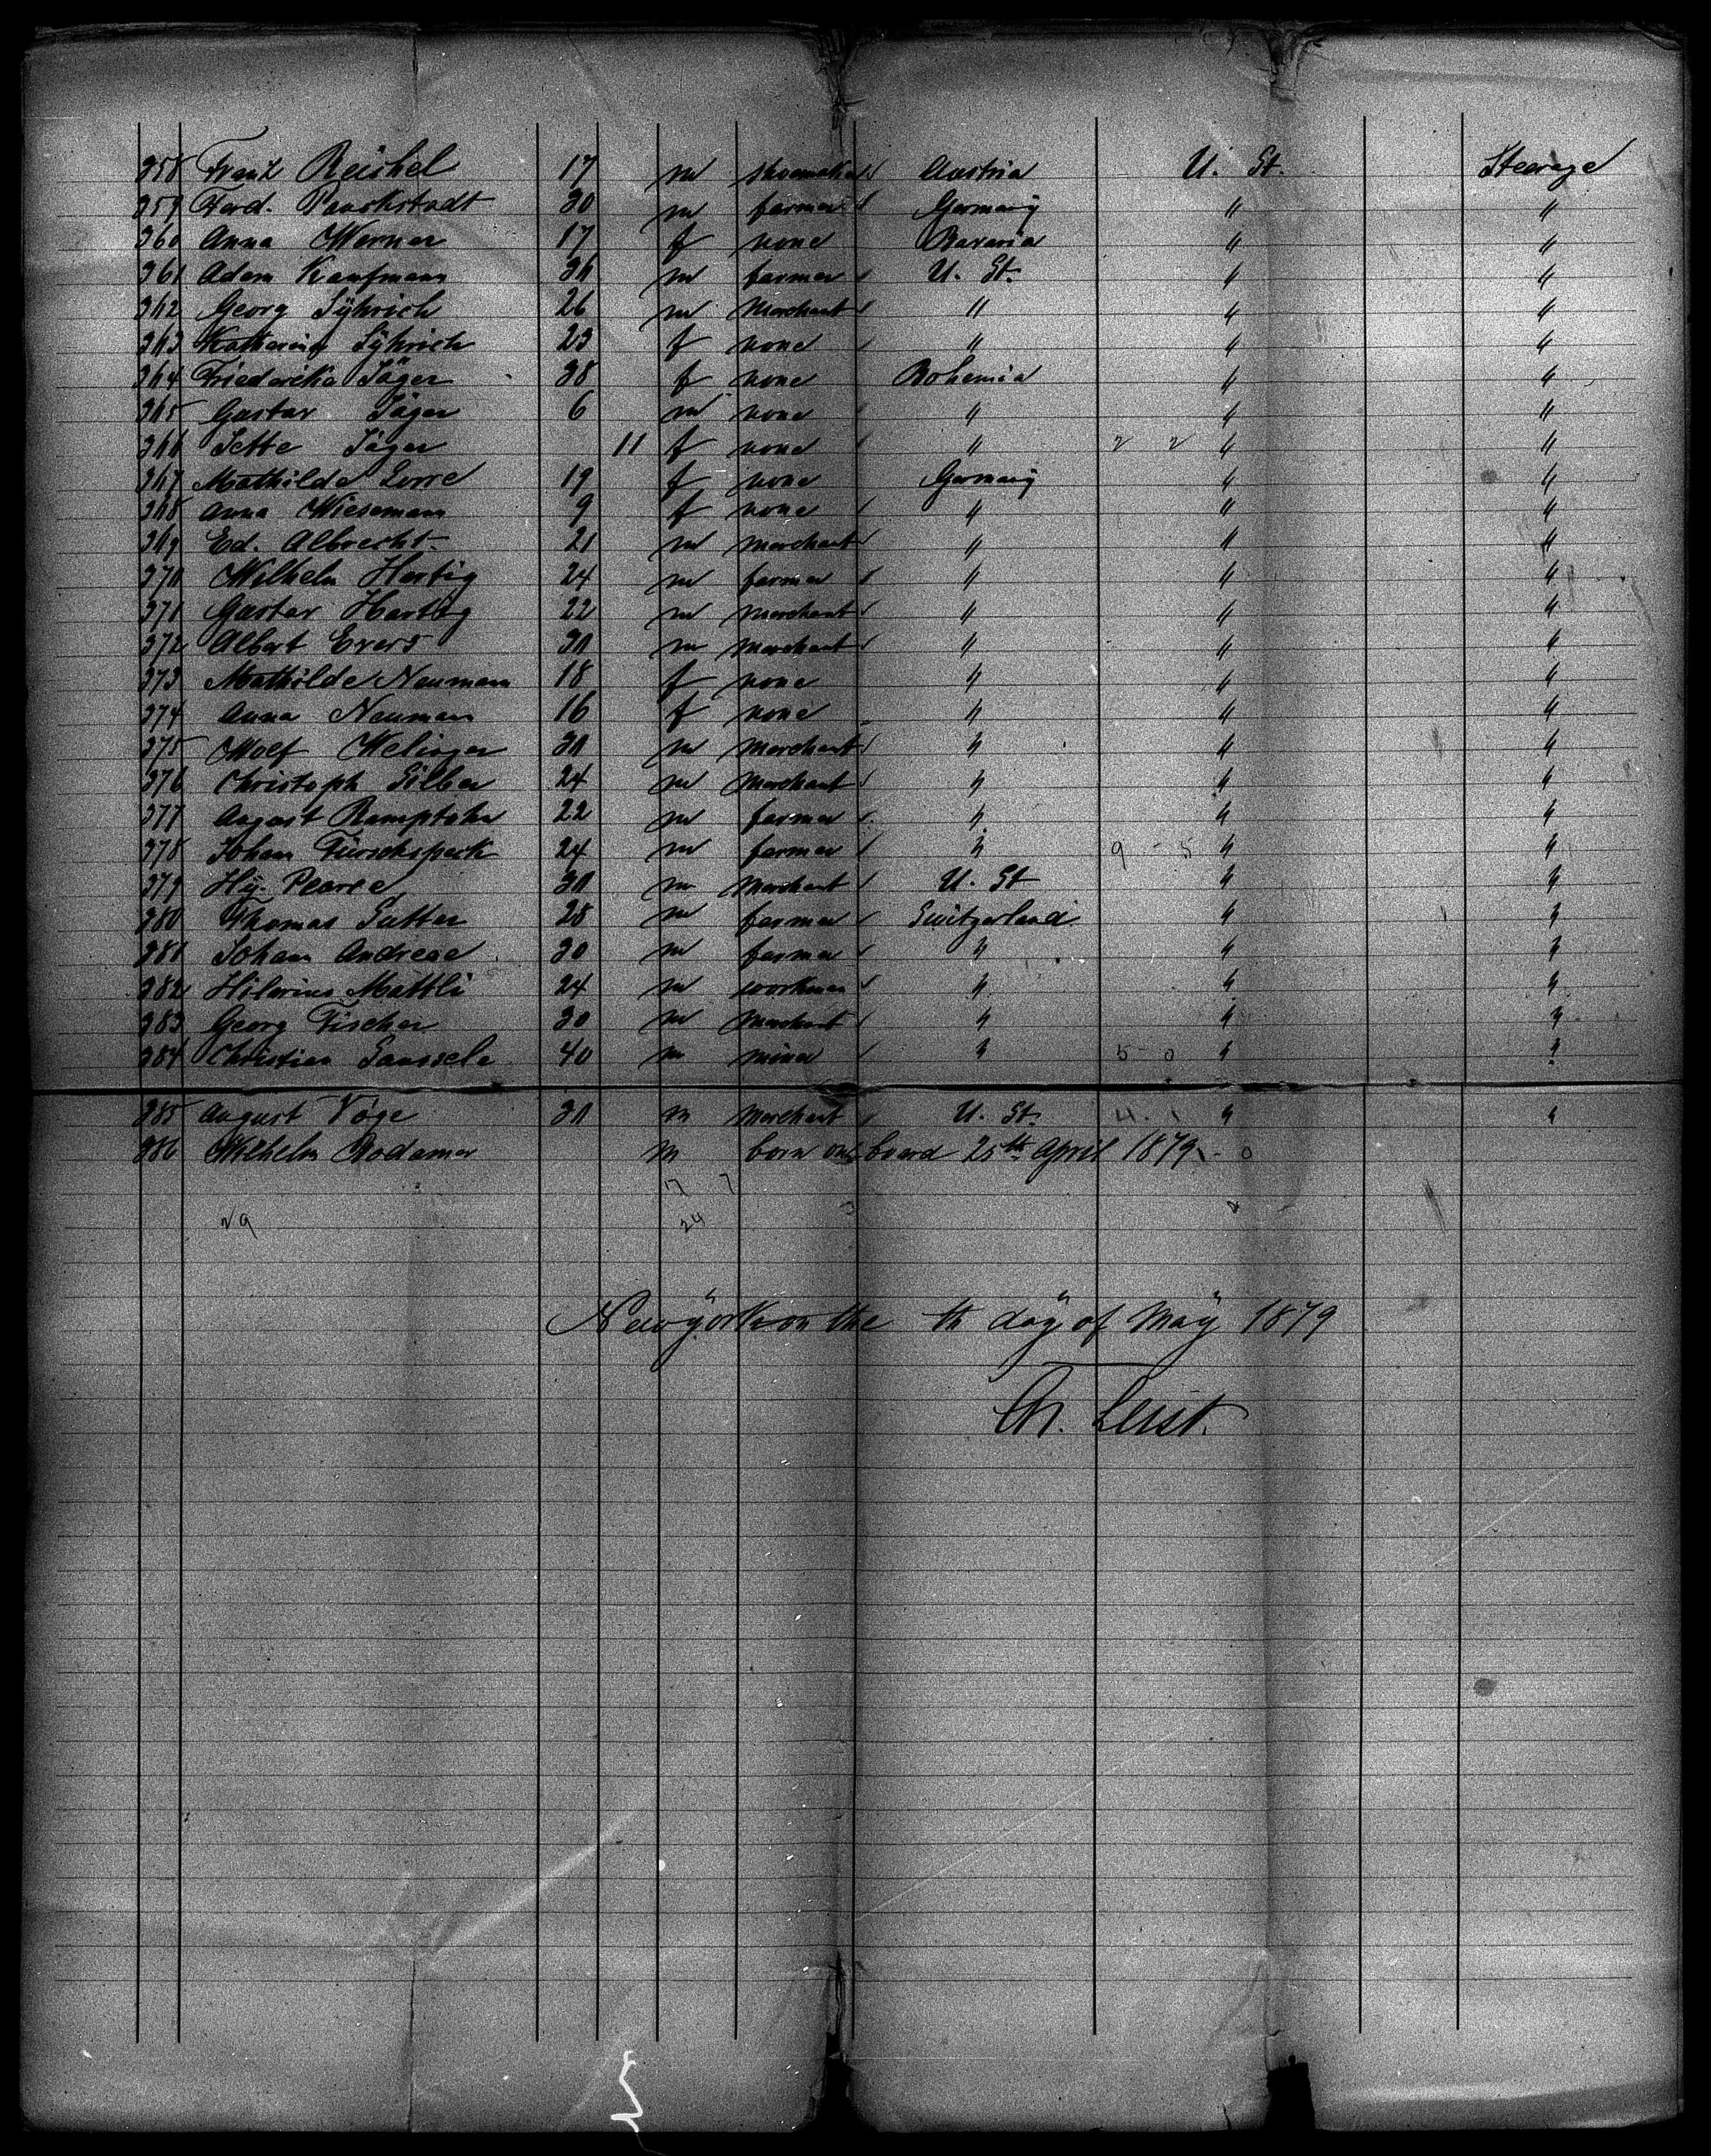 358 Franz Reichel 17 m shoemaker Austria U. St. Steerage
359 Ferd. Pauckstadt 30 m farmer Germany " "
360 Anna Werner 17 f none Bavaria " "
361 Adam Kaufmann 30 m farmer U. St. " "
362 Georg 26 m merchant " " "
363 Katharina 23 f none " " "
364 Friederike Jäger 38 f none Bohemia " "
365 Gustav Jäger 6 m none " " "
366 Jette Jäger 11 f none " 2 2 " "
367 Mathilde Lorre 19 f none Germany " "
368 Anna Wiesemann 9 f none " " "
369 Ed. Albrecht 21 m merchant " " "
370 Wilhelm Hartig 24 m farmer " " "
371 Gustav Hartig 22 m merchant " " "
372 Albert Evers 30 m merchant " " "
373 Mathilde Neumann 18 f none " " "
374 Anna Neumann 16 f none " " "
375 Wolf 30 m merchant " " "
376 Christoph Silber 24 m merchant " " "
377 August 22 m farmer " " "
378 Johann 24 m farmer " 9 - 5 " "
379 Hy. Pearce 30 m merchant U. St " "
380 Thomas Sutter 28 m farmer Switzerland " "
381 Johann Andreae 30 m farmer " " "
382 Hilarius Mattli 24 m workman " " "
383 Georg Fischer 30 m merchant " " "
384 Christian 40 m miner " 5 - 0 " "
385 August Vöge 30 m merchant U. St. 4 - 1 " "
386 Wilhelm Bodamer m born on board 25th April 1879 1 - 0
17 7
29 24
Newÿork on the th daÿ of Maÿ 1879
Ch. Leist.